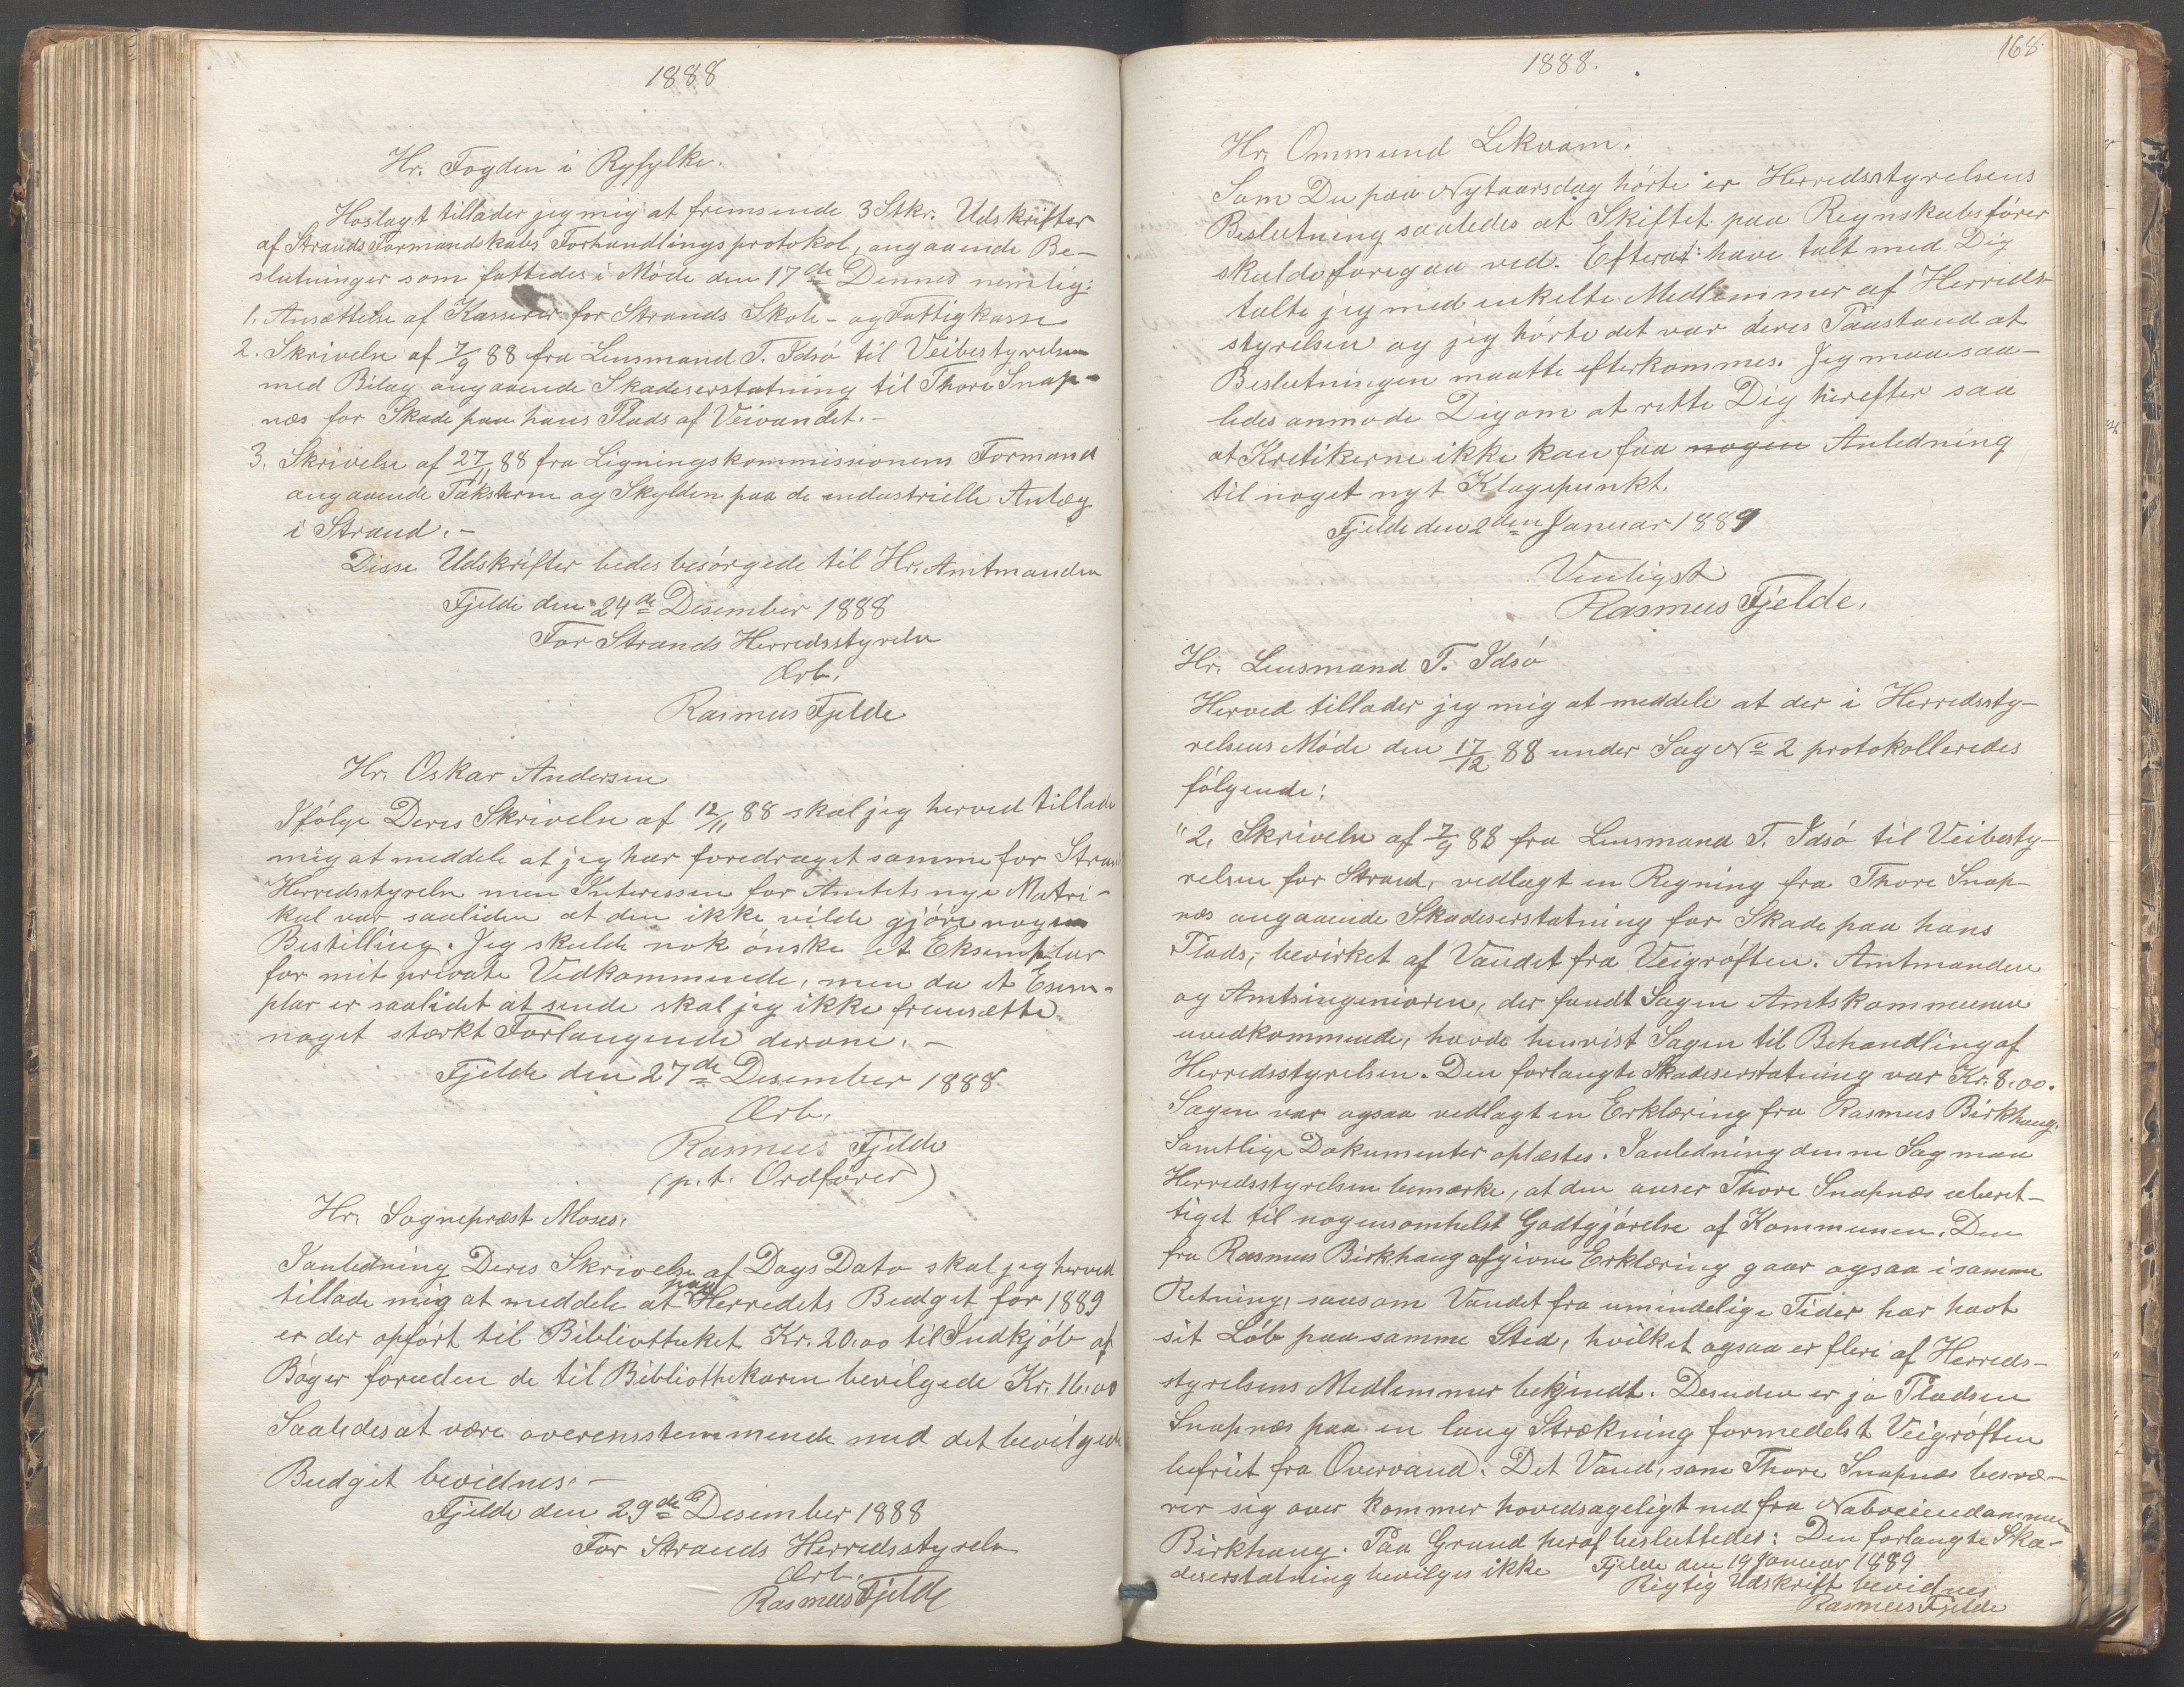 1888
Hr. Fogden i Ryfylke.
Hoslagt tillader jeg mig at fremsende 3 Stkr. Udskrifter
af Strands Formandskabs Forhandlingsprotokol, angaaende Be-
slutninger som fattedes i Møde den 17de Dennes nemlig:
1. Ansættelse af Kasserer for Strands Skole- og Fattigkasse
2. Skrivelse af 7/9 88 fra Lensmand T. Idsø til Veibestyrelsen
med Bilag angaaende Skadeserstatning til Thore Snap-
næs for Skade paa hans Plads af Veivandet.-
3. Skrivelse af 27/11 88 fra Ligningskommissionens Formand
angaaende Taksterne og Skylden paa de industrielle Anlæg
i Strand.-
Disse Udskrifter bedes besørgede til Hr. Amtmanden
Fjelde den 24de Desember 1888
For Strands Herredsstyrelse
Ærb.
Rasmus Fjelde
Hr. Oskar Andersen
Ifølge Deres Skrivelse af 12/11 88 skal jeg herved tillade
mig at meddele at jeg har foredraget samme for Strands
Herredsstyrelse men Interessen for Amtets nye Matri-
kul var saaliden at den ikke vilde gjøre nogen
Bestilling. Jeg skulde nok ønske et Eksemplar
for mit private Vedkommende, men da et Exem-
plar er saalidet at sende skal jeg ikke fremsætte
noget stærkt Forlangende derom.-
Fjelde den 27de Desember 1888
Ærb.
Rasmus Fjelde
(p.t. Ordfører)
Hr. Sognepræst Moses.
Ianledning Deres Skrivelse af Dags Dato skal jeg herved
tillade mig at meddele at paa Herredets Budget for 1889
er der opført til Bibliotheket Kr. 20,00 til Indkjøb af
Bøger foruden de til Bibliothekaren bevilgede Kr. 16,00
Saaledes at være overensstemmende med det bevilgede
Budget bevidnes.-
Fjelde den 29de Desember 1888
For Strands Herredsstyrelse
Ærb.
Rasmus Fjelde
168.
1888.
Hr. Ommund Lekvam.
Som Du paa Nytaarsdag hørte er Herredsstyrelsens
Beslutning saaledes at Skiftet paa Regnskabsfører
skulde foregaa ved. Efterat have talt med Dig
talte jeg med enkelte Medlemmer af Herreds-
styrelsen og jeg hørte det var deres Paastand at
Beslutningen maatte efterkommes. Jeg maa saa-
ledes anmode Dig om at rette Dig herefter saa
at Kritikerne ikke kan faa nogen Anledning
til noget nyt Klagepunkt.
Fjelde den 2den Januar 1889
Venligst
Rasmus Fjelde.
Hr. Lensmand T. Idsø
Herved tillader jeg mig at meddele at der i Herredssty-
relsens Møde den 17/12 88 under Sag No 2 protokolleredes
følgende:
"2. Skrivelse af 7/9 88 fra Lensmand T. Idsø til Veibesty-
relsen for Strand, vedlagt en Regning fra Thore Snap-
næs angaaende Skadeserstatning for Skade paa hans
Plads, bevirket af Vandet fra Veigrøften. Amtmanden
og Amtsingeniøren, der fandt Sagen Amtskommunen
uvedkommende, havde henvist Sagen til Behandling af
Herredsstyrelsen. Den forlangte Skadeserstatning var Kr. 8,00.
Sagen var ogsaa vedlagt en Erklæring fra Rasmus Birkhaug.
Samtlige Dokumenter oplæstes. Ianledning denne Sag maa
Herredsstyrelsen bemærke, at den anser Thore Snapnæs uberet-
tiget til nogensomhelst Godtgjørelse af Kommunen. Den
fra Rasmus Birkhaug afgivne Erklæring gaar ogsaa i samme
Retning, saasom Vandet fra umindelige Tider har havt
sit Løb paa samme Sted, hvilket ogsaa er flere af Herreds-
styrelsens Medlemmer bekjendt. Desuden er jo Pladsen
Snapnæs paa en lang Strækning formedelst Veigrøften
befriet fra Overvand. Det Vand, som Thore Snapnæs besvæ-
rer sig over kommer hovedsageligt ned fra Naboeiendommen
Birkhaug. Paa Grund heraf besluttedes: Den forlangte Ska-
deserstatning bevilges ikke Fjelde den 19 Januar 1889
Rigtig Udskrift bevidnes
Rasmus Fjelde